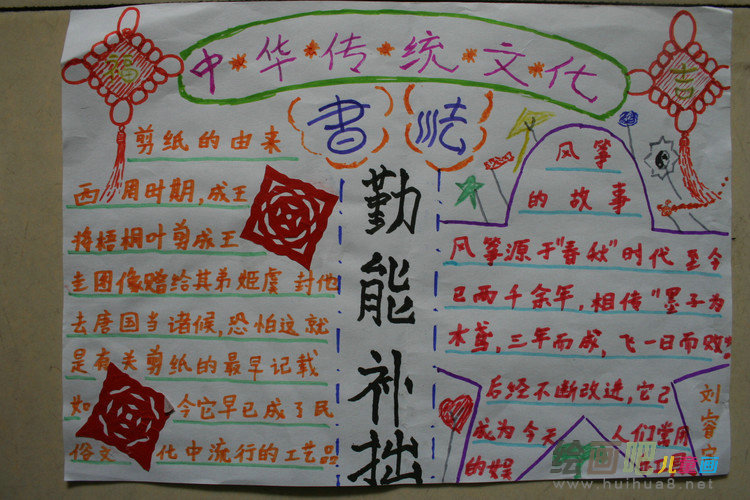 中华传统文化
福
吉
书法
剪纸的由来
西周时期,成王
将梧桐叶剪成王
圭图像赠给其弟姬虞 封他
去唐国当诸候,恐怕这就
是有关剪纸的最早记载
如 今它早已成了民
俗文 化中流行的工艺品
勤能补拙
风筝
的故事
风筝源于"春秋"时代 至今
已两千余年,相传"墨子为
木鸢,三年而成,飞一日而败"。
后经不断改进,它已
成为今天 人们常用
的娱
刘睿
绘画吧儿童画
www.huihua8.net